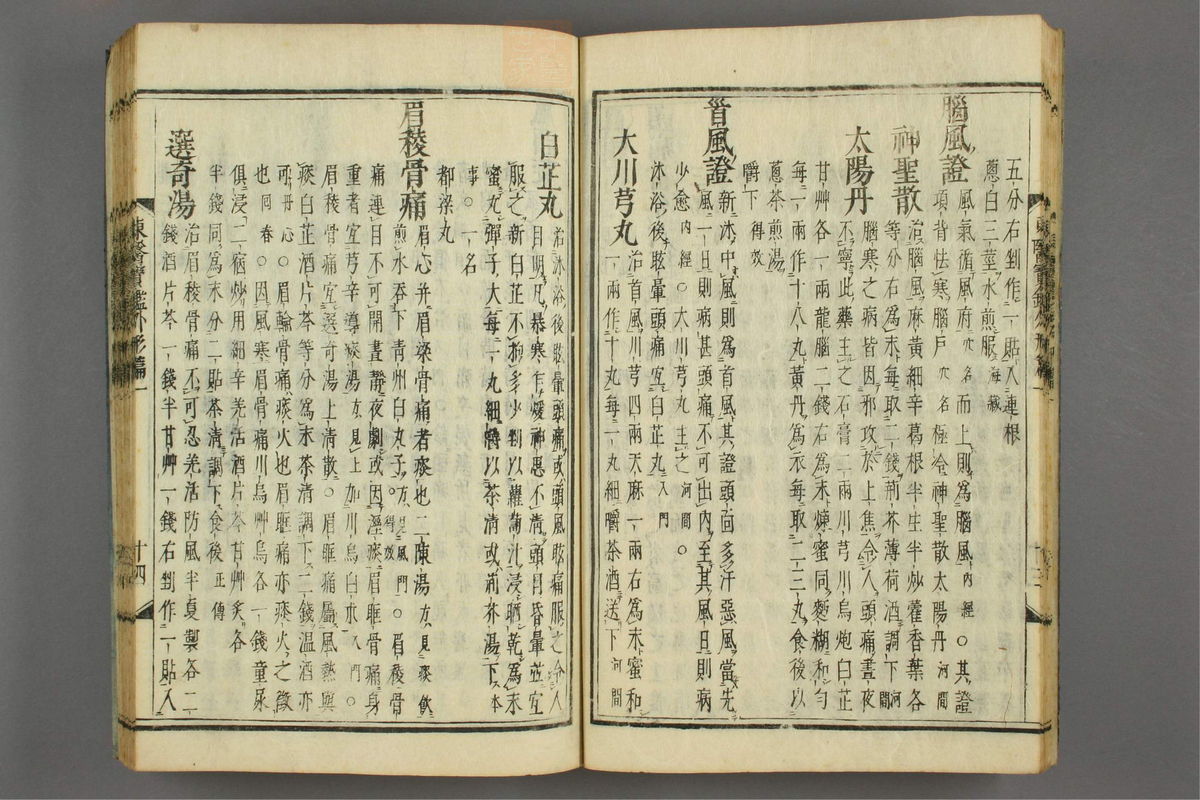 五分右剉作一貼入連根
葱白三莖水煎服海藏
腦風證風氣循風府穴名而上則爲腦風內經○其證
項背怯寒腦戶穴名極令神聖散太陽丹河間
神聖散治腦風麻黃細辛葛根半生半炒藿香葉各
等分右爲末每取二錢荊芥薄荷酒調下河間
太陽丹腦寒之病皆因邪攻於上焦令人頭痛晝夜
不寧此藥主之石膏二兩川芎川烏炮白芷
甘艸各一兩龍腦二錢右爲末煉蜜同麪糊和勻
每一兩作十八丸黃丹爲衣每取二三丸食後以
葱茶煎湯
嚼下得效
首風證新沐中風則爲首風其證頭面多汗惡風當先
風一日則病甚頭痛不可出內至其風日則病
少愈內經○大川芎丸主之河間○
沐浴後眩暈頭痛宜白芷丸入門
大川芎丸治首風川芎四兩天麻一兩右爲末蜜和
一兩作十丸每一丸細嚼茶酒送下河間
白芷丸治沐浴後眩暈頭痛或頭風眩痛服之令人
目明凡暴寒乍煖神思不淸頭目昏暈並宜
服之新白芷不拘多少剉以蘿蔔汁浸晒乾爲末
蜜丸彈子大每一丸細嚼以茶淸或荊芥湯下本
事○一名
都梁丸
眉稜骨痛眉心并眉梁骨痛者痰也二陳湯方見痰飮
煎水呑下靑州白丸子方見風門○得效○眉稜骨
痛連目不可開晝靜夜劇或因濕痰眉眶骨痛身
重者宜芎辛導痰湯方見上加川烏白朮入門○
眉稜骨痛宜選奇湯上淸散○眉眶痛屬風熱與
痰白芷酒片芩等分爲末茶淸調下二錢溫酒亦
可丹心○眉輪骨痛痰火也眉眶痛亦痰火之徵
也回春○因風寒眉骨痛川烏艸烏各一錢童尿
俱浸二宿炒用細辛羌活酒片芩甘艸炙各
半錢同爲末分二貼茶淸調下食後正傳
選奇湯治眉稜骨痛不可忍羌活防風半夏製各二
錢酒片芩一錢半甘艸一錢右剉作一貼入
東醫寶鑑外形篇一
十四